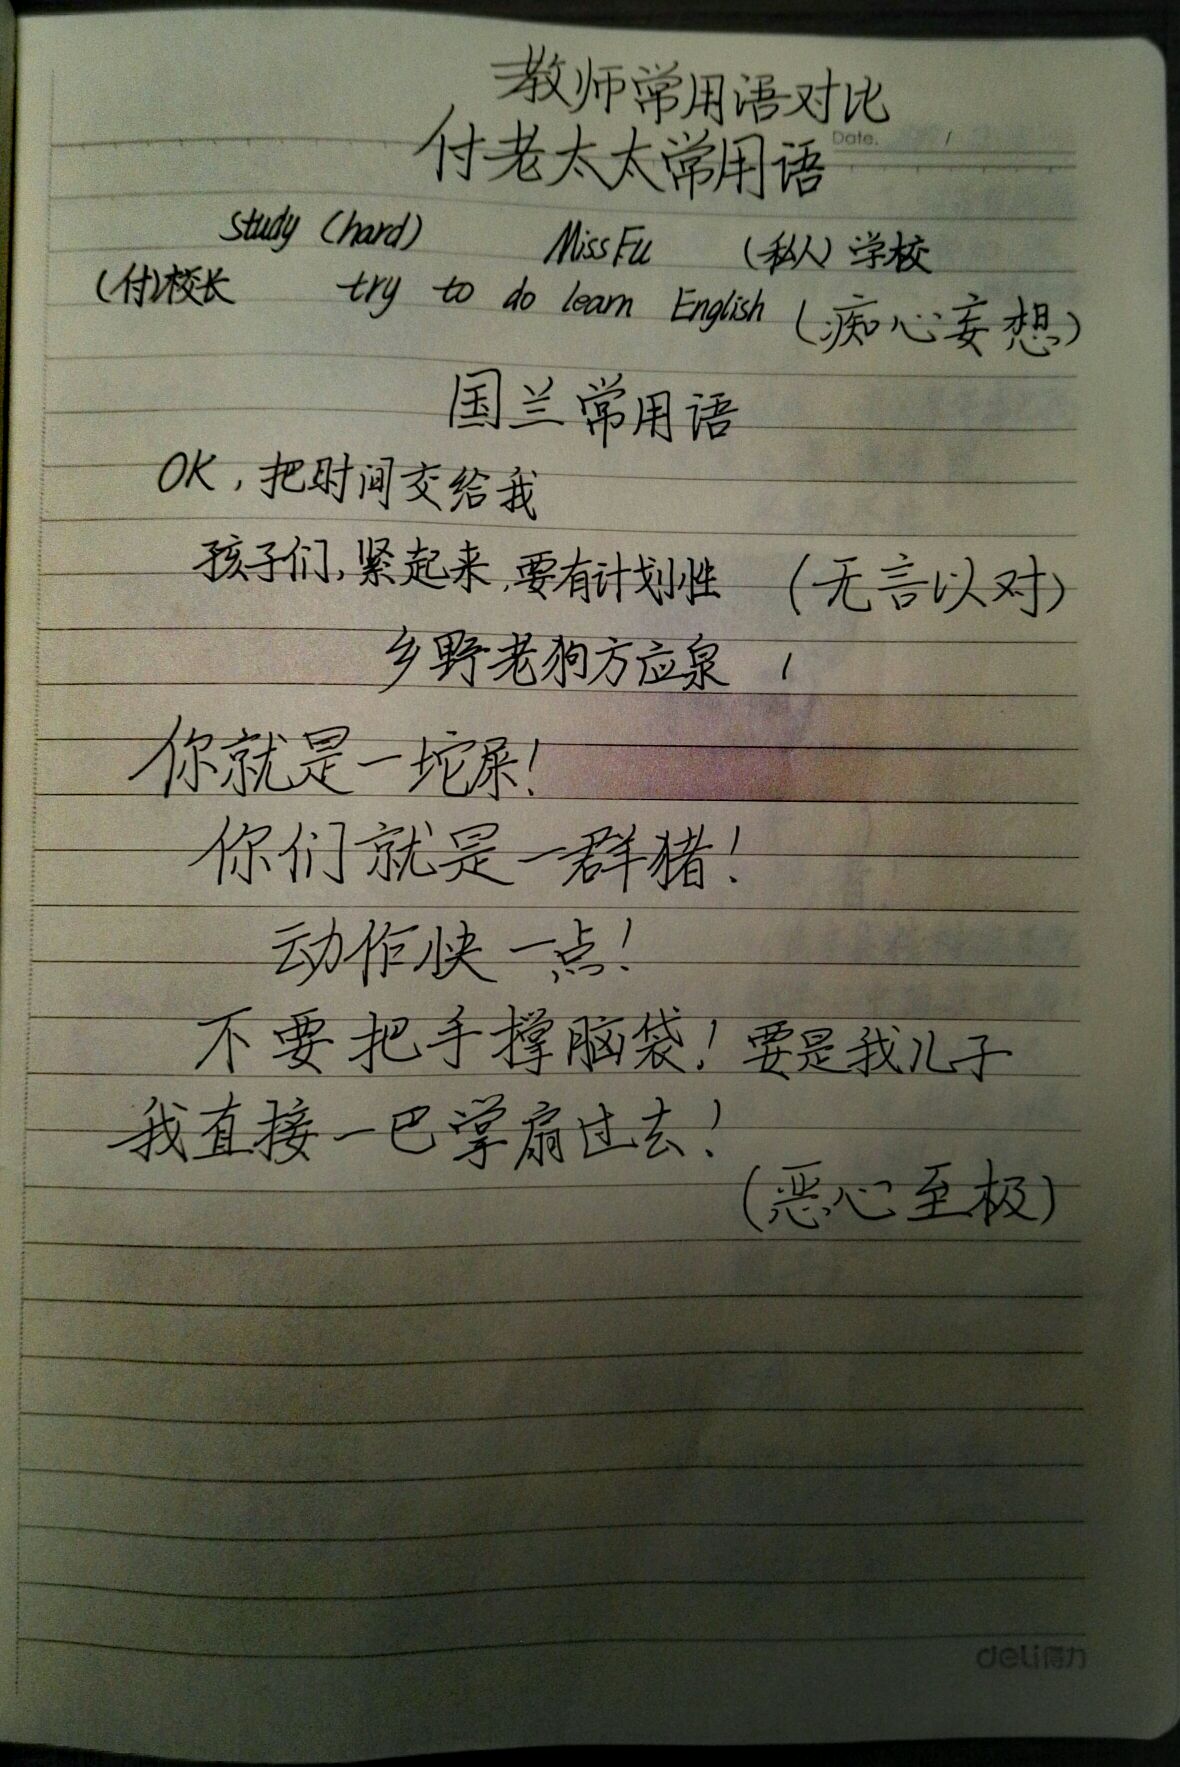 教师常用语对比
Date.
付老太太常用语
study (hard) Miss Fu (私人)学校
(付)校长 try to do learn English (痴心妄想)
国兰常用语
OK,把时间交给我
孩子们,紧起来,要有计划性 (无言以对)
乡野老狗方应泉
你就是一坨屎!
你们就是一群猪!
动作快一点!
不要把手撑脑袋!要是我儿子
我直接一巴掌扇过去!
(恶心至极)
deli得力